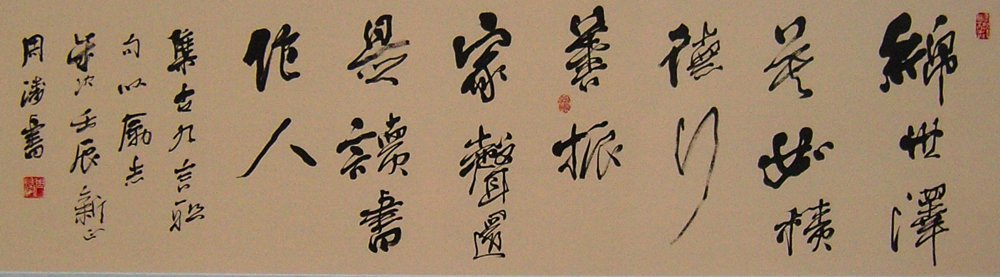 綿世澤
莫如積
德行
善振
家聲還
是讀書
作人
集古九言聯
句以勵志
歲次壬辰新正
周書